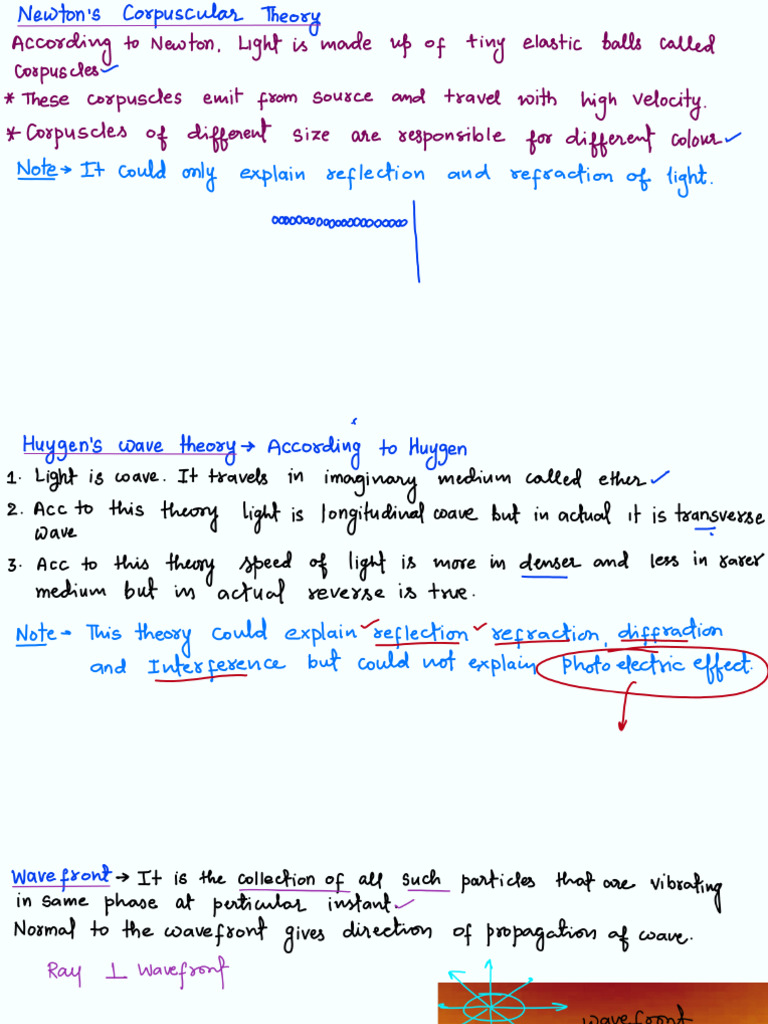 Newton's Corpuscular Theory
According to Newton, Light is made up of tiny elastic balls called
Corpuscles
* These corpuscles emit from source and travel with high velocity.
* Corpuscles of different size are responsible for different colour
Note → It could only explain reflection and refraction of light.
Huygen's wave theory → According to Huygen
1. Light is wave. It travels in imaginary medium called ether
2. Acc to this theory light is longitudinal wave but in actual it is transverse
wave
3. Acc to this theory speed of light is more in denser and less in rarer
medium but in actual reverse is true.
Note → This theory could explain reflection refraction, diffraction
and Interference but could not explain photo electric effect.
Wavefront → It is the collection of all such particles that are vibrating
in same phase at perticular instant
Normal to the wavefront gives direction of propagation of wave.
Ray ⊥ Wavefront
wavefront